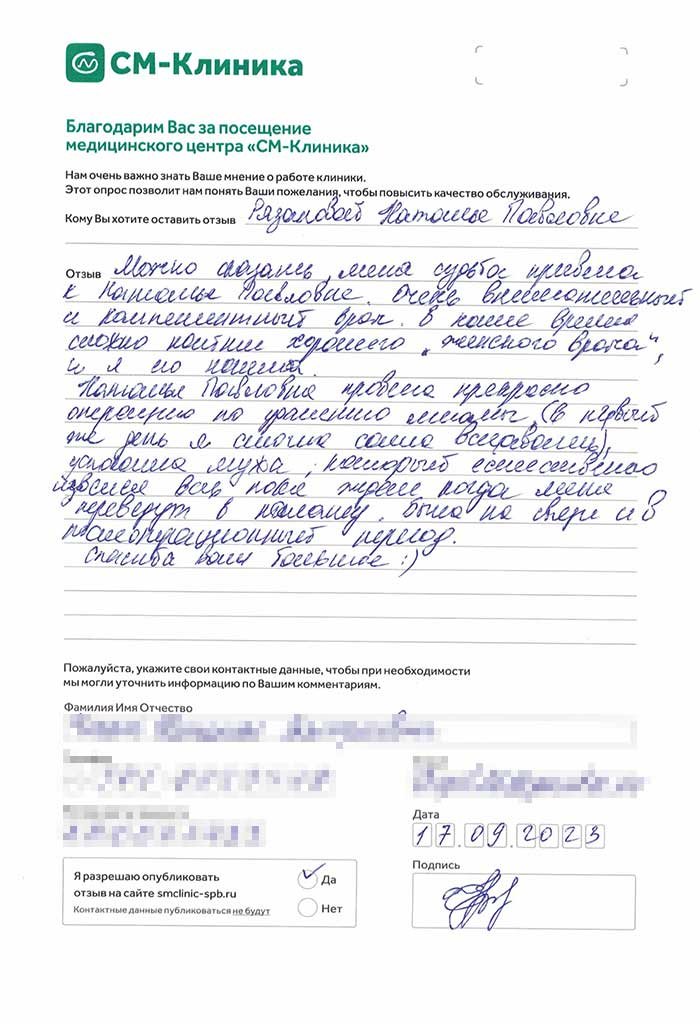 СМ-Клиника
Благодарим Вас за посещение
медицинского центра «СМ-Клиника»
Нам очень важно знать Ваше мнение о работе клиники.
Этот опрос позволит нам понять Ваши пожелания, чтобы повысить качество обслуживания.
Кому Вы хотите оставить отзыв Рязановой Наталье Павловне
Отзыв Можно сказать, меня судьба привела
к Наталье Павловне. Очень внимательный
и компетентный врач. В наше время
сложно найти хорошего „женского врача",
и я его нашла.
Наталья Павловна провела прекрасно
операцию по удалению миомы, (в первый
же день я смогла сама вставать),
успокоила мужа, который естественно
извелся весь пока ждали когда меня
переведут в палату. Была на связи и в
послеоперационный период.
Спасибо Вам большое :)
Пожалуйста, укажите свои контактные данные, чтобы при необходимости
мы могли уточнить информацию по Вашим комментариям.
Фамилия Имя Отчество
Дата
17.09.2023
Подпись
Я разрешаю опубликовать
отзыв на сайте smclinic-spb.ru
Контактные данные публиковаться не будут
Да
Нет